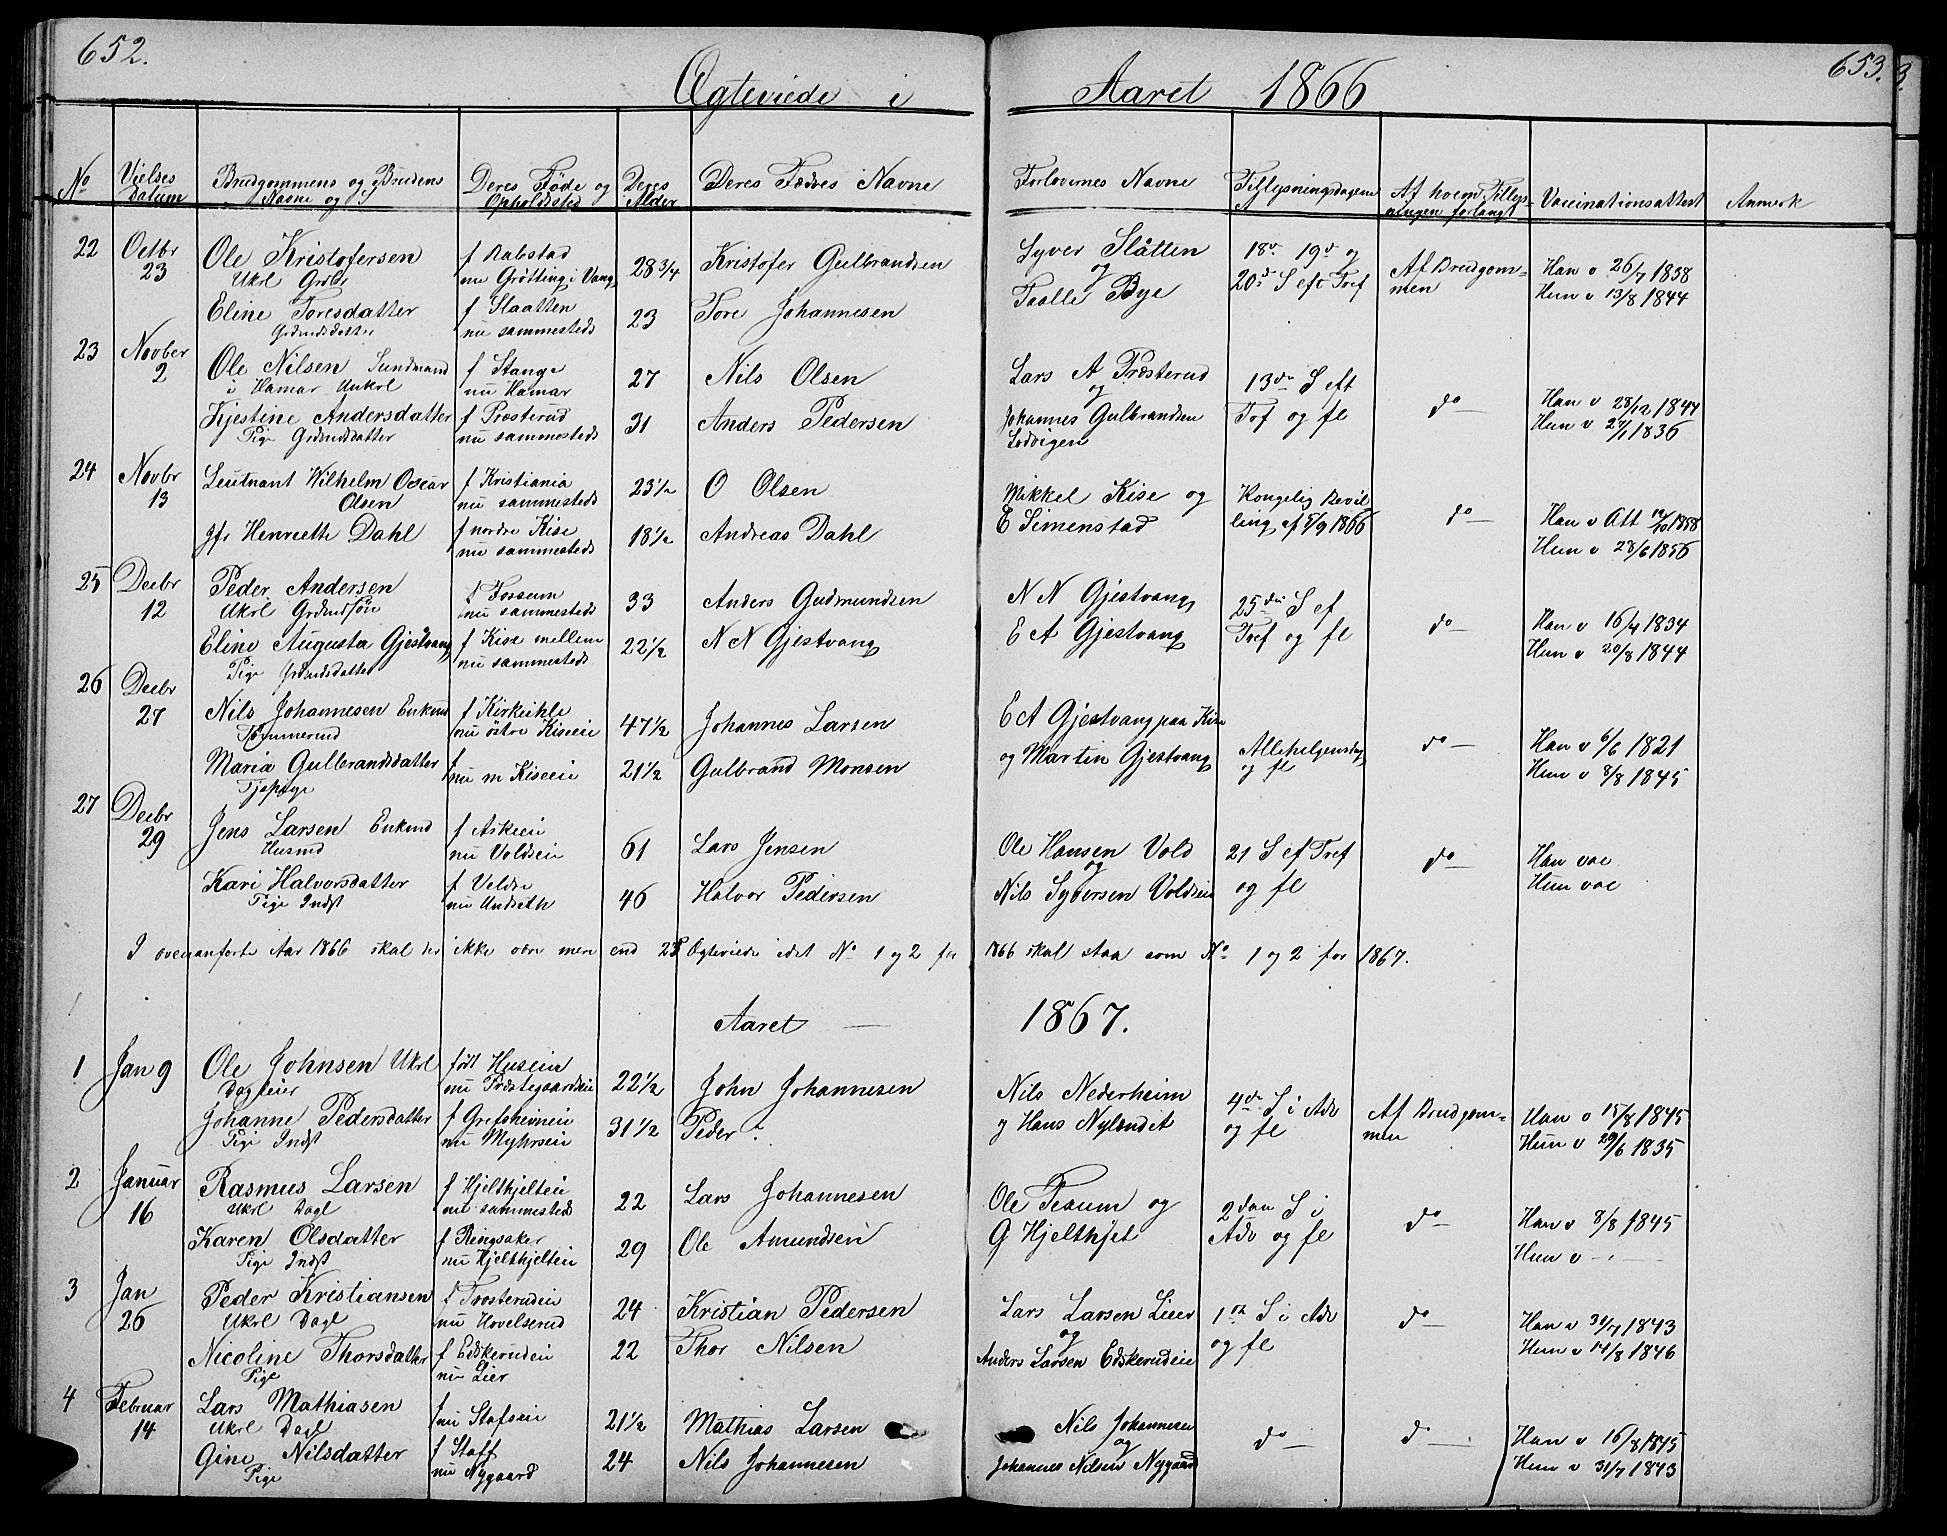 652.
Ægteviede i
Aaret 1866
653.
No
Vielses Datum
Brudgommens og Brudens Navne og
Deres Føde og Opholdsted
Deres Alder
Deres Fædres Navne
Forlovernes Navne
Tillysningsdagene
Af hvem Tillysningen forlangt
Vaccinationsattest
Anmerk
22 Octbr 23
Ole Kristofersen
Ukrl Grdbr
f Rabstad
nu Grötting i Vang
28 3/4
Kristofer Gulbrandsen
Eline Toresdatter
Grdmdsdatter
f Slaatten
nu sammesteds
23
Tore Johannesen
Syver Slåtten
og
Taalle Bye
18de 19de og
20de S eft Tref
Af Brudgommen
Han v 26/7 1838
Hun v 13/8 1844
23 Novber 2
Ole Nilsen Sundmand
i Hamar Unkrl
f Stange
nu Hamar
27
Nils Olsen
Kjestine Andersdatter
Pige Grdmdsdatter
f Præsterud
nu sammesteds
31
Anders Pedersen
Lars A Præsterud
og
Johannes Gulbrandsen
Lodvigen
13de S eft
Tref og fl
do
Han v 28/12 1844
Hun v 27/1 1836
24 Novbr 13
Leutnant Wilhelm Oscar
Olsen
f Kristiania
nu sammesteds
23 1/2
O Olsen
jfr Henriette Dahl
f nordre Kise
nu sammesteds
18 1/2
Andreas Dahl
Mikkel Kise og
E Simenstad
Kongelig Bevilling af 5/9 1866
do
Han v Att 12/10 1858
Hun v 28/6 1856
25 Decbr 12
Peder Andersen
Ukrl Grdmdsön
f Fossum
nu sammesteds
33
Anders Gudmundsen
Eline Augusta Gjestvang
Pige Grdmdsdatter
f Kise mellem
nu sammesteds
22 1/2
N N Gjestvang
N N Gjestvang
E A Gjestvang
25de S ef
Tref og fl
do
Han v 16/4 1834
Hun v 20/8 1844
26 Decbr 27
Nils Johannesen Enkmd
Tömmermd
f Kirkeihle
nu östre Kiseeie
47 1/2
Johannes Larsen
Maria Gulbrandsdatter
Tjepige
f
nu m Kiseeie
21 1/2
Gulbrand Monsen
E A Gjestvang paa Kise
og Martin Gjestvang
Allehelgensdag
og fl
do
Han v 6/6 1821
Hun v 8/8 1845
27 Decbr 29
Jens Larsen Enkmd
Husmd
f Askeeie
nu Voldseie
61
Lars Jensen
Kari Halvorsdatter
Pige Indst
f Veldre
nu Undseth
46
Halvor Pedersen
Ole Hansen Vold
og
Nils Syversen Voldseie
21 S ef Tref
og fl
do
Han vac
Hun vac
I ovenanførte Aar 1866 skal der ikke være mere end 25 Ægteviede idet No 1 og 2 for 1866 skal staa som No 1 og 2 for 1867.
Aaret 1867.
1 Jan 9
Ole Johnsen Ukrl
Dagleier
født Huseeie
nu Præstegaardseie
22 1/2
John Johannesen
Johanne Pedersdatter
Pige Indst
f Grefsheimeie
nu Myhrseie
31 1/2
Peder
Nils Nederheim
og Hans Nylendet
4de S i Adv
og fl
Af Brudgommen
Han v 15/8 1845
Hun v 29/6 1835
2 Januar 16
Rasmus Larsen
Ukrl Dagl
f Hjelthjelteie
nu sammesteds
22
Lars Johannesen
Karen Olsdatter
Pige Indst
f Ringsaker
nu Hjelthjelteie
29
Ole Amundsen
Ole Tesum og
G Hjelthjet
2den S i
Adv og fl
do
Han v 8/8 1845
Hun v
3 Jan 26
Peder Kristiansen
Ukrl Dagl
f Trosterudeie
nu Hovelsrud
24
Kristian Pedersen
Nicoline Thorsdatter
Pige
f Edskerudeie
nu Lier
22
Thor Nilsen
Lars Larsen Lier
og
Anders Larsen Edskerudeie
1ste S i Adv
og fl
do
Han v 31/7 1843
Hun v 14/8 1846
4 Februar 14
Lars Mathiasen
Ukrl Dagl
f
nu Stafseie
21 1/2
Mathias Larsen
Gine Nilsdatter
Pige
f Staff
nu Nygaard
24
Nils Johannesen
Nils Johannesen
og
Johannes Nilsen Nygaard
do
do
Han v 16/8 1845
Hun v 31/7 1843